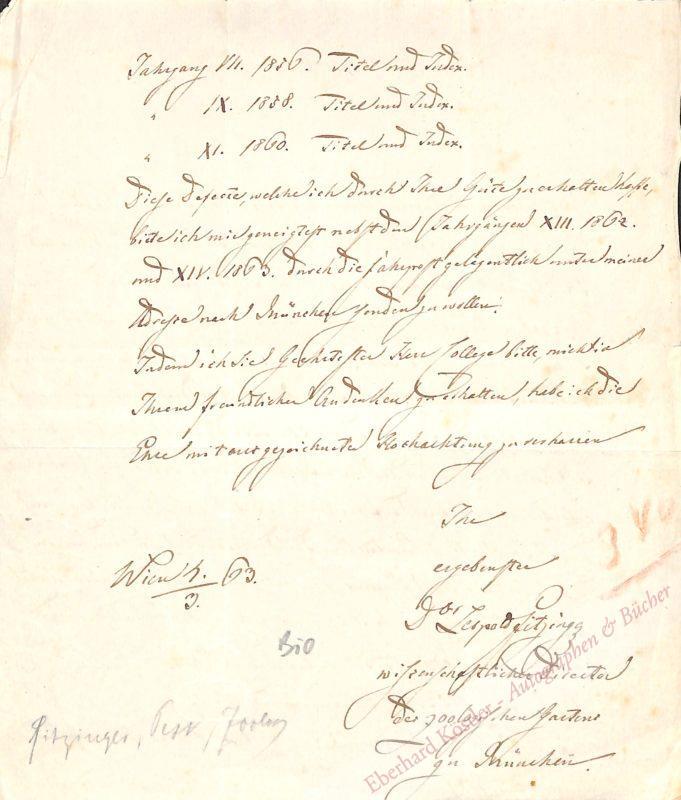 Jahrgang VII. 1856. Titel und Index.
" IX. 1858. Titel und Index.
" XI. 1860. Titel und Index.
Diese Defecte, welche ich durch Ihre Güte zu erhalten hoffe,
bitte ich mir geneigtest nebst den Jahrgängen XIII. 1862.
und XIV. 1863. durch die Fahrpost gelegentlich unter meiner
Adresse nach München senden zu wollen.
Indem ich Sie Geehrtester Herr College bitte, mich in
Ihrem freundlichen Andenken zu erhalten, habe ich die
Ehre mit ausgezeichneter Hochachtung zu verharren
Ihr
ergebenster
Wien 4./3. 63.
Dor Leopold Fitzinger
wissenschaftlicher Director
des zoologischen Gartens
zu München.
Bio
Fitzinger, Zoolog
Eberhard Köstler - Autographen & Bücher